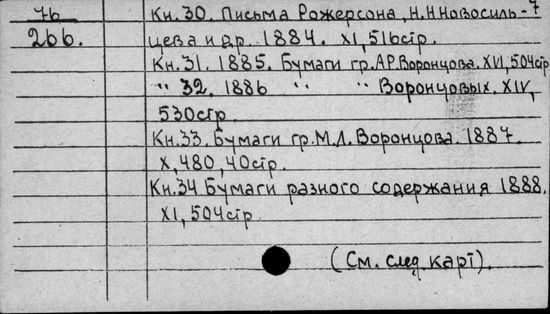 7б Кн. 30. Письма Рожерсона, Н.Н Новосиль- 7
266. цева и др. 1884. XI, 516стр.
Кн. 31. 1885. Бумаги гр. А.Р. Воронцова. XVI, 504стр
" 32. 1886 " " Воронцовых. XIV,
530стр.
Кн. 33. Бумаги гр. М.Л. Воронцова. 1887.
X, 480, 40стр.
Кн. 34 Бумаги разного содержания 1888.
XI, 504стр.
(См. след. карт).